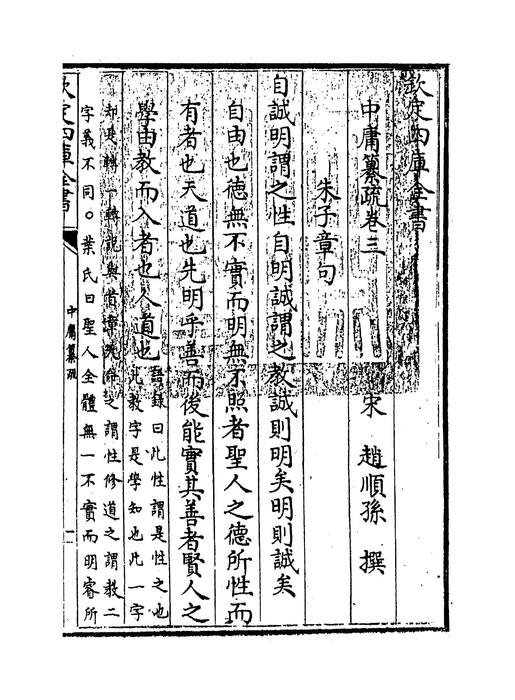 欽定四庫全書
中庸纂疏卷三
宋 趙順孫 撰
朱子章句
自誠明謂之性自明誠謂之教誠則明矣明則誠矣
自由也德無不實而明無不照者聖人之德所性而
有者也天道也先明乎善而後能實其善者賢人之
學由教而入者也人道也
語錄曰此性謂是性之也
此教字是學知也此一字
却是轉一轉說與首章天命之謂性修道之謂教二
字義不同○葉氏曰聖人全體無一不實而明睿所
欽定四庫全書
中庸纂疏
一